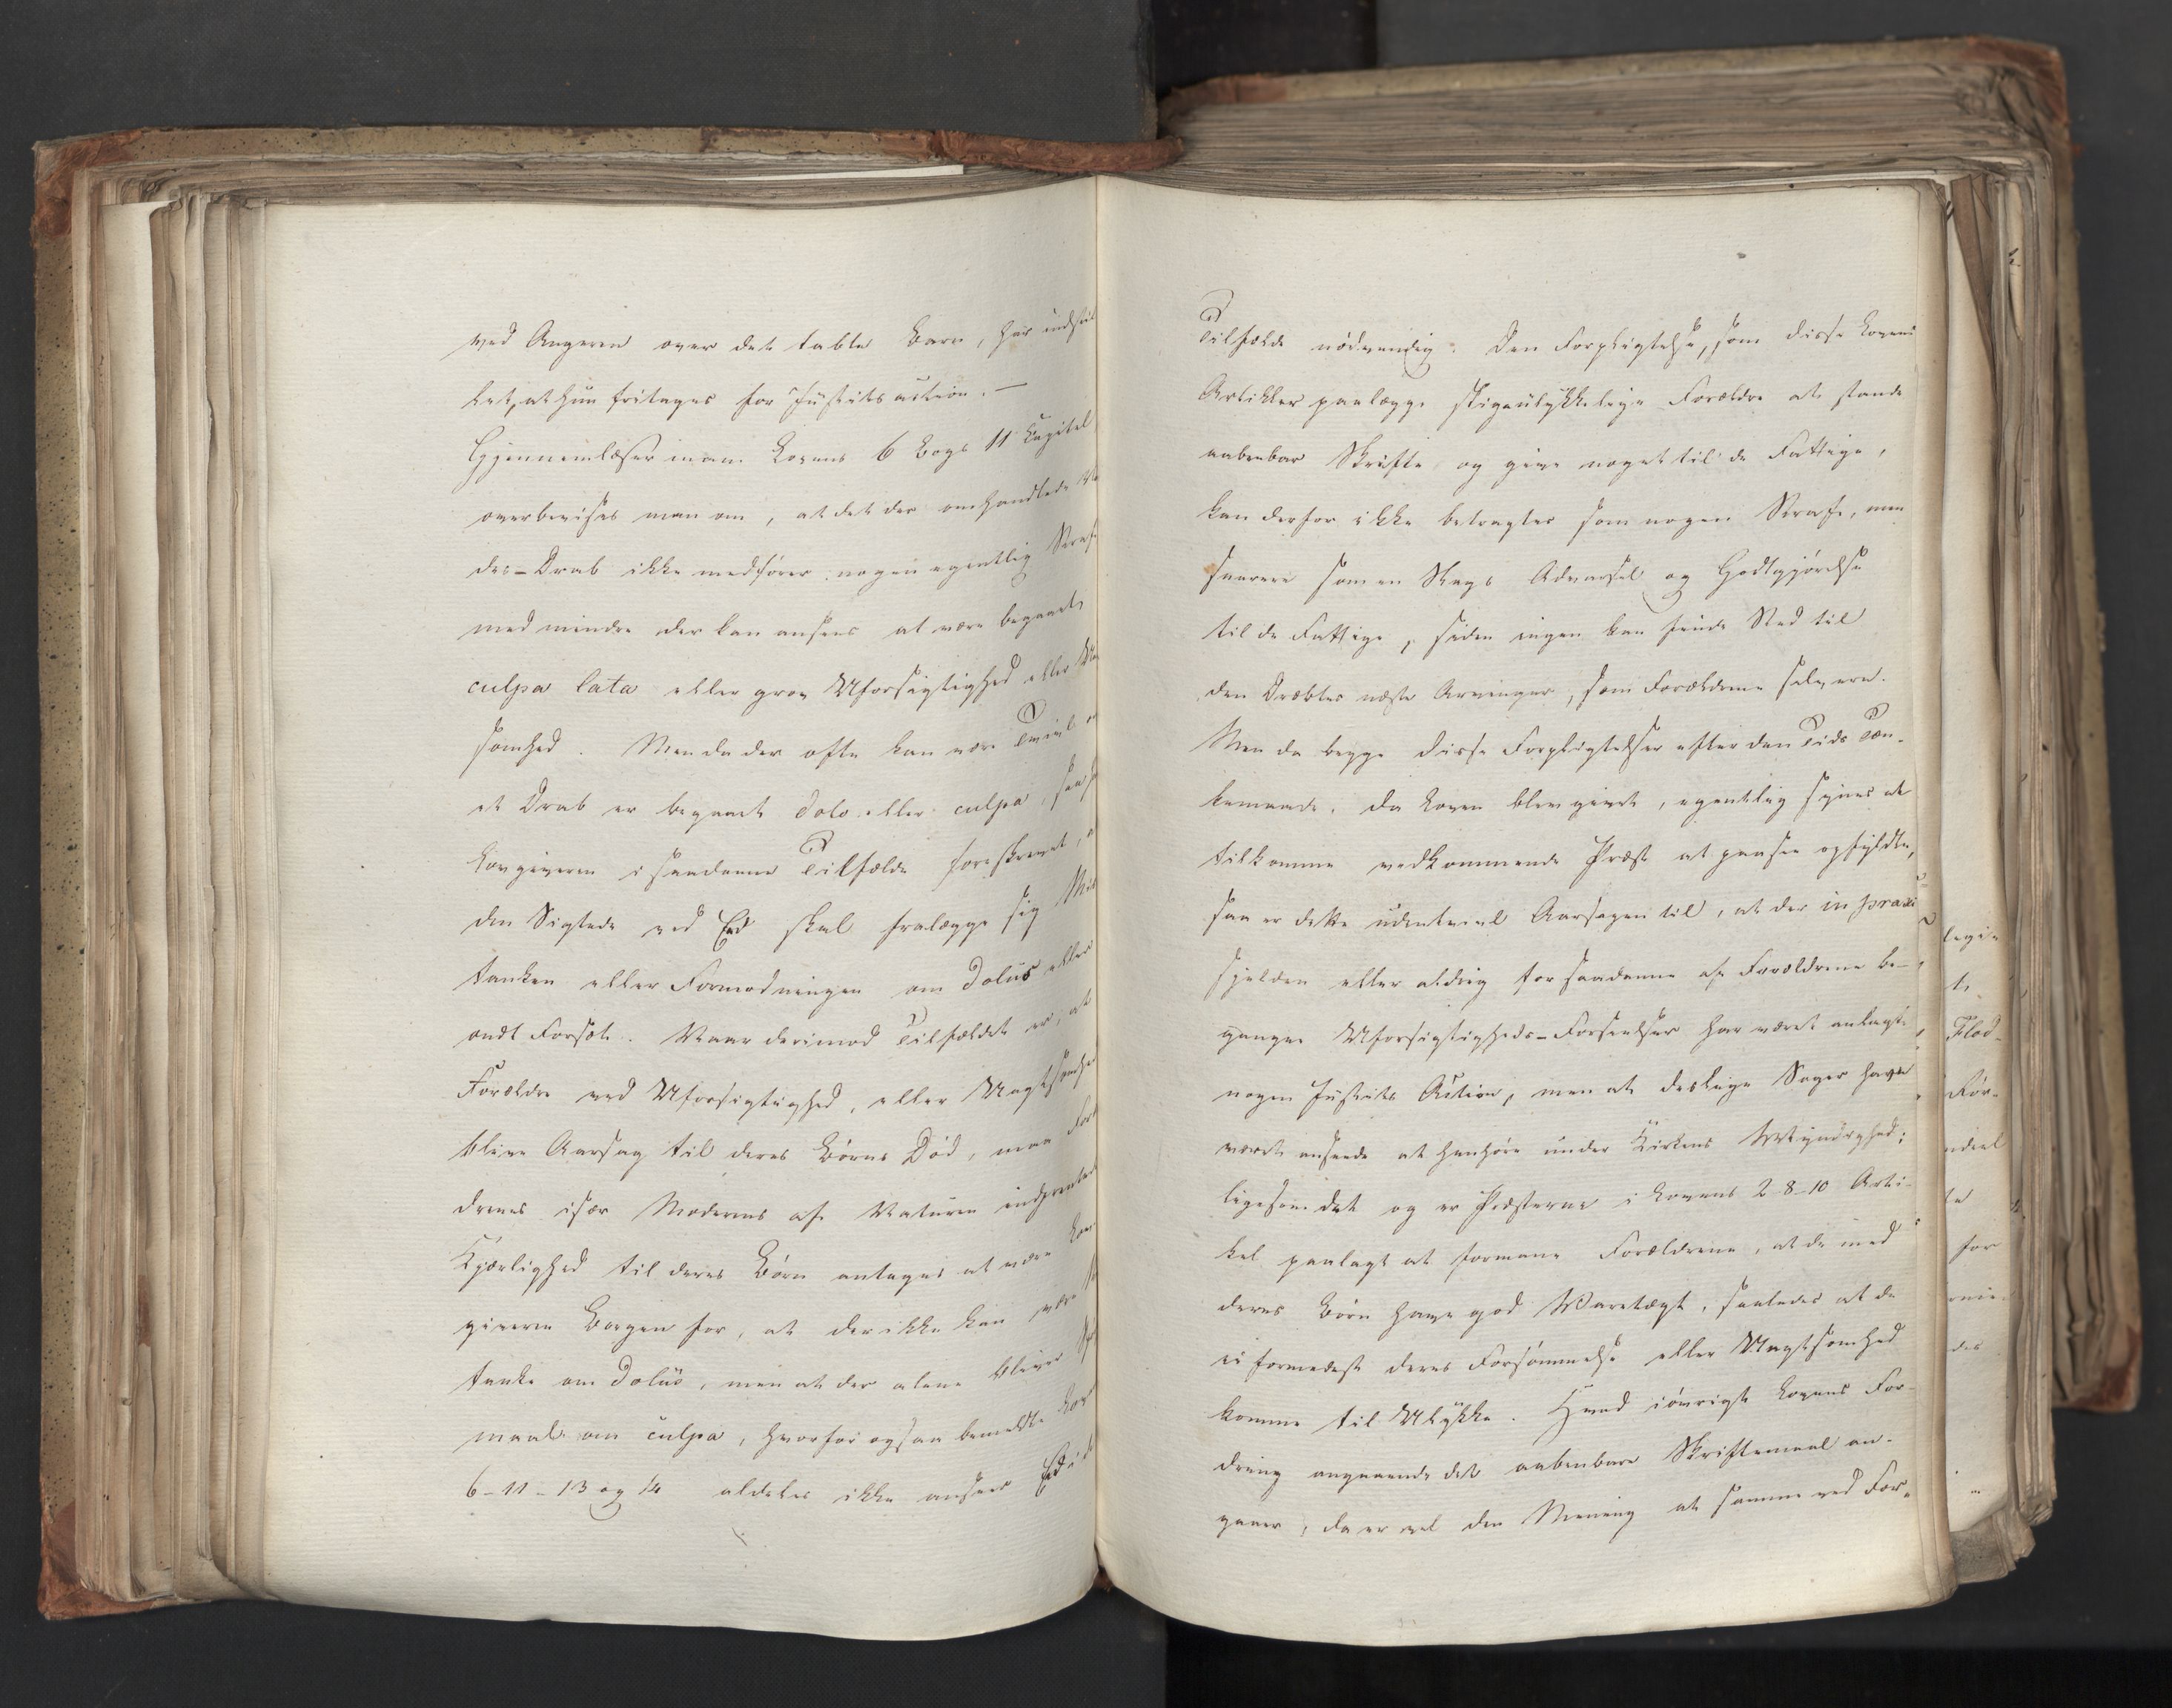 ved Angeren over det tabte Barn, har indstil
let, at hun fritages for Justits action. —
Gjennemlæser man Lovens 6 Bogs 11 Capitel
overbevises man om, at det der omhandlede Va
des-Drab ikke medfører nogen egentlig Straf
med mindre der kan ansees at være begaaet
culpa lata eller grov Uforsigtighed eller
somhed. Men da der ofte kan være Tvivl o
et Drab er begaaet dolo eller culpa, saa h
Lovgiveren i saadanne Tilfælde foreskrevet, a
den Sigtede ved Eed skal fralægge sig Mis
tanken eller Formodningen om dolus eller
ondt Forsæt. Naar derimod Tilfældet er, at
Forældre ved Uforsigtighed, eller Uagtsomhe
blive Aarsag til deres Børns Død, maa For
drenes især Moderens af Naturen indprentede
Kjærlighed til deres Børn antages at være Lov
giveren Borgen for, at der ikke kan være
tanke om dolus, men at der alene bliver Sp
maal om culpa, hvorfor ogsaa bemeldte Lov
6-11-13 og 14 aldeles ikke anseer Eed i d
Tilfælde nödvendig. Den Forpligtelse, som disse Lovens
Artikler paalægge slige ulykkelige Forældre at stande
aabenbar Skrifte og give noget til de Fattige,
kan derfor ikke betragtes som nogen Straf, men
snarere som en Slags Advarsel og Godtgjørelse
til de Fattige, siden ingen kan finde Sted til
den Dræbtes næste Arvinger, som Forældrene selv ere.
Men da begge disse Forpligtelser efter den Tids Tæn-
kemaade, da Loven blev givet, egentlig synes at
tilkomme vedkommende Præst at paasee opfyldte,
saa er dette udentvivl Aarsagen til, at der in praxi
sjelden eller aldrig for saadanne af Forældrene be-
gangne Uforsigtigheds-Forseelser har været anlagt
nogen Justits Action, men at deslige Sager have
været ansete at henhøre under Kirkens Myndighed;
ligesom det og er Præsterne i Lovens 2-8-10 Arti-
kel paalagt at formane Forældrene, at de med
deres Börn have god Waretægt, saaledes at de
ei formedelst deres Forsömmelse eller Uagtsomhed
komme til Ulykke. Hvad iövrigt Lovens For-
dring angaaende det aabenbare Skriftemaal an-
gaaer, da er vel den Mening at samme ved For-